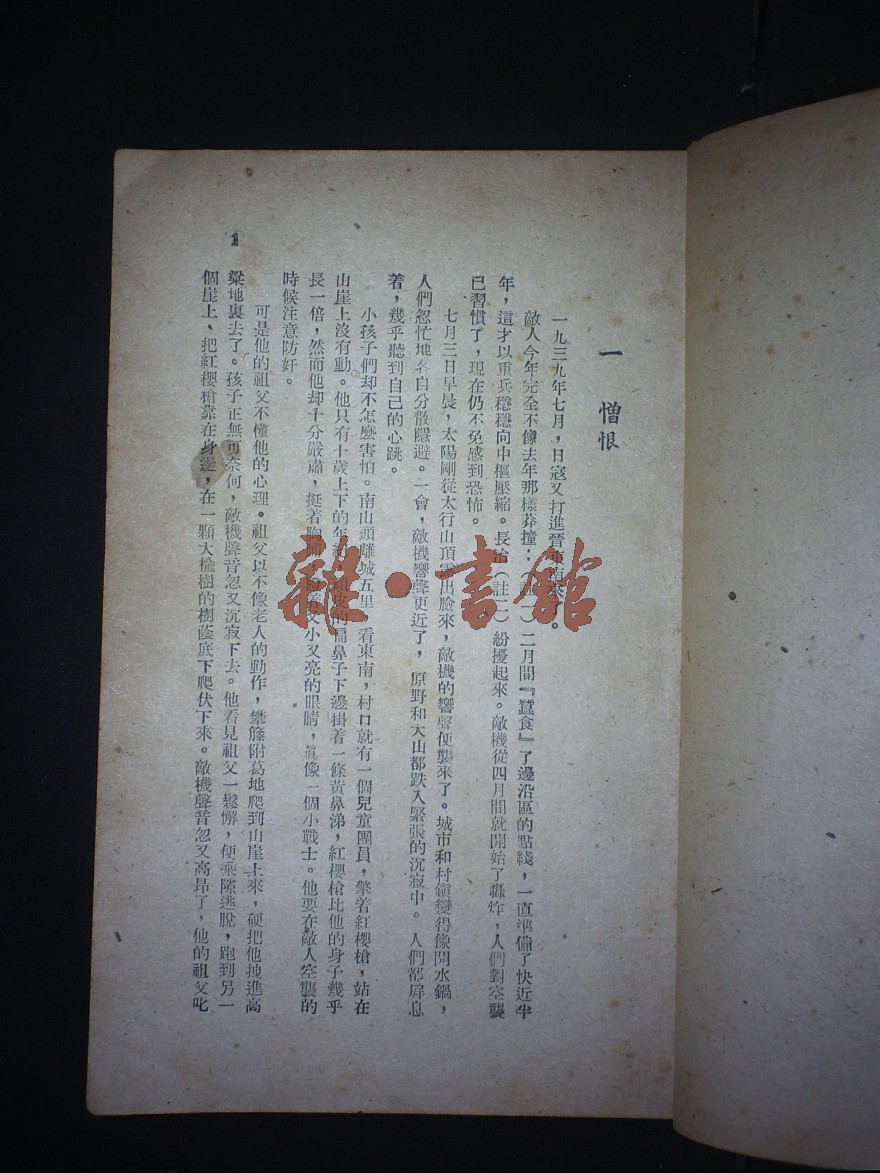 一 憎恨
一九三九年七月，日寇又打進晉東南來了。
敵人今年完全不像去年那樣莽撞：（註一）二月間『蠶食』了邊沿區的點綫，一直準備了快近半
年，這才以重兵穩穩向中樞壓縮。長治（註二）紛擾起來。敵機從四月間就開始了轟炸，人們對空襲
已習慣了，現在仍不免感到恐怖。
七月三日早晨，太陽剛從太行山頂露出臉來，敵機的響聲便襲來了。城市和村鎮變得像開水鍋，
人們怱忙地各自分散隱避。一會，敵機響聲更近了，原野和大山都跌入緊張的沉寂中。人們都屏息
着，幾乎聽到自己的心跳。
小孩子們却不怎麼害怕。南山頭離城五里，看東南，村口就有一個兒童團員，擎着紅櫻槍，站在
山崖上沒有動。他只有十歲上下的年紀，頑皮的扁鼻子下邊掛着一條黃鼻涕，紅櫻槍比他的身子幾乎
長一倍，然而他却十分嚴肅，挺着胸脯，着又小又亮的眼睛，眞像一個小戰士。他要在敵人空襲的
時候注意防奸。
可是他的祖父不懂他的心理。祖父以不像老人的動作，攀籐附葛地爬到山崖上來，硬把他拽進高
粱地裏去了。孩子正無可奈何，敵機聲音忽又沉寂下去。他看見祖父一鬆懈，便乘隙逃脫，跑到另一
個崖上、把紅櫻槍靠在身邊，在一顆大榆樹的樹蔭底下爬伏下來。敵機聲音忽又高昂了，他的祖父叱
1
雜·書館